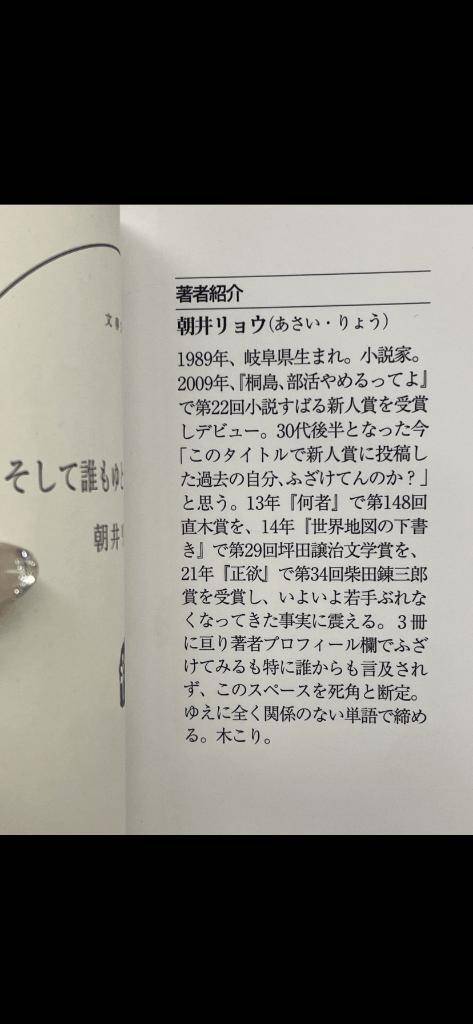 文春
そして誰もゆ
朝井
著者紹介
朝井リョウ(あさい・りょう)
1989年、岐阜県生まれ。小説家。
2009年、『桐島、部活やめるってよ』
で第22回小説すばる新人賞を受賞
しデビュー。30代後半となった今
「このタイトルで新人賞に投稿し
た過去の自分、ふざけてんのか？」
と思う。13年『何者』で第148回
直木賞を、14年『世界地図の下書
き』で第29回坪田譲治文学賞を、
21年『正欲』で第34回柴田錬三郎
賞を受賞し、いよいよ若手ぶれな
くなってきた事実に震える。３冊
に亘り著者プロフィール欄でふざ
けてみるも特に誰からも言及され
ず、このスペースを死角と断定。
ゆえに全く関係のない単語で締め
る。木こり。